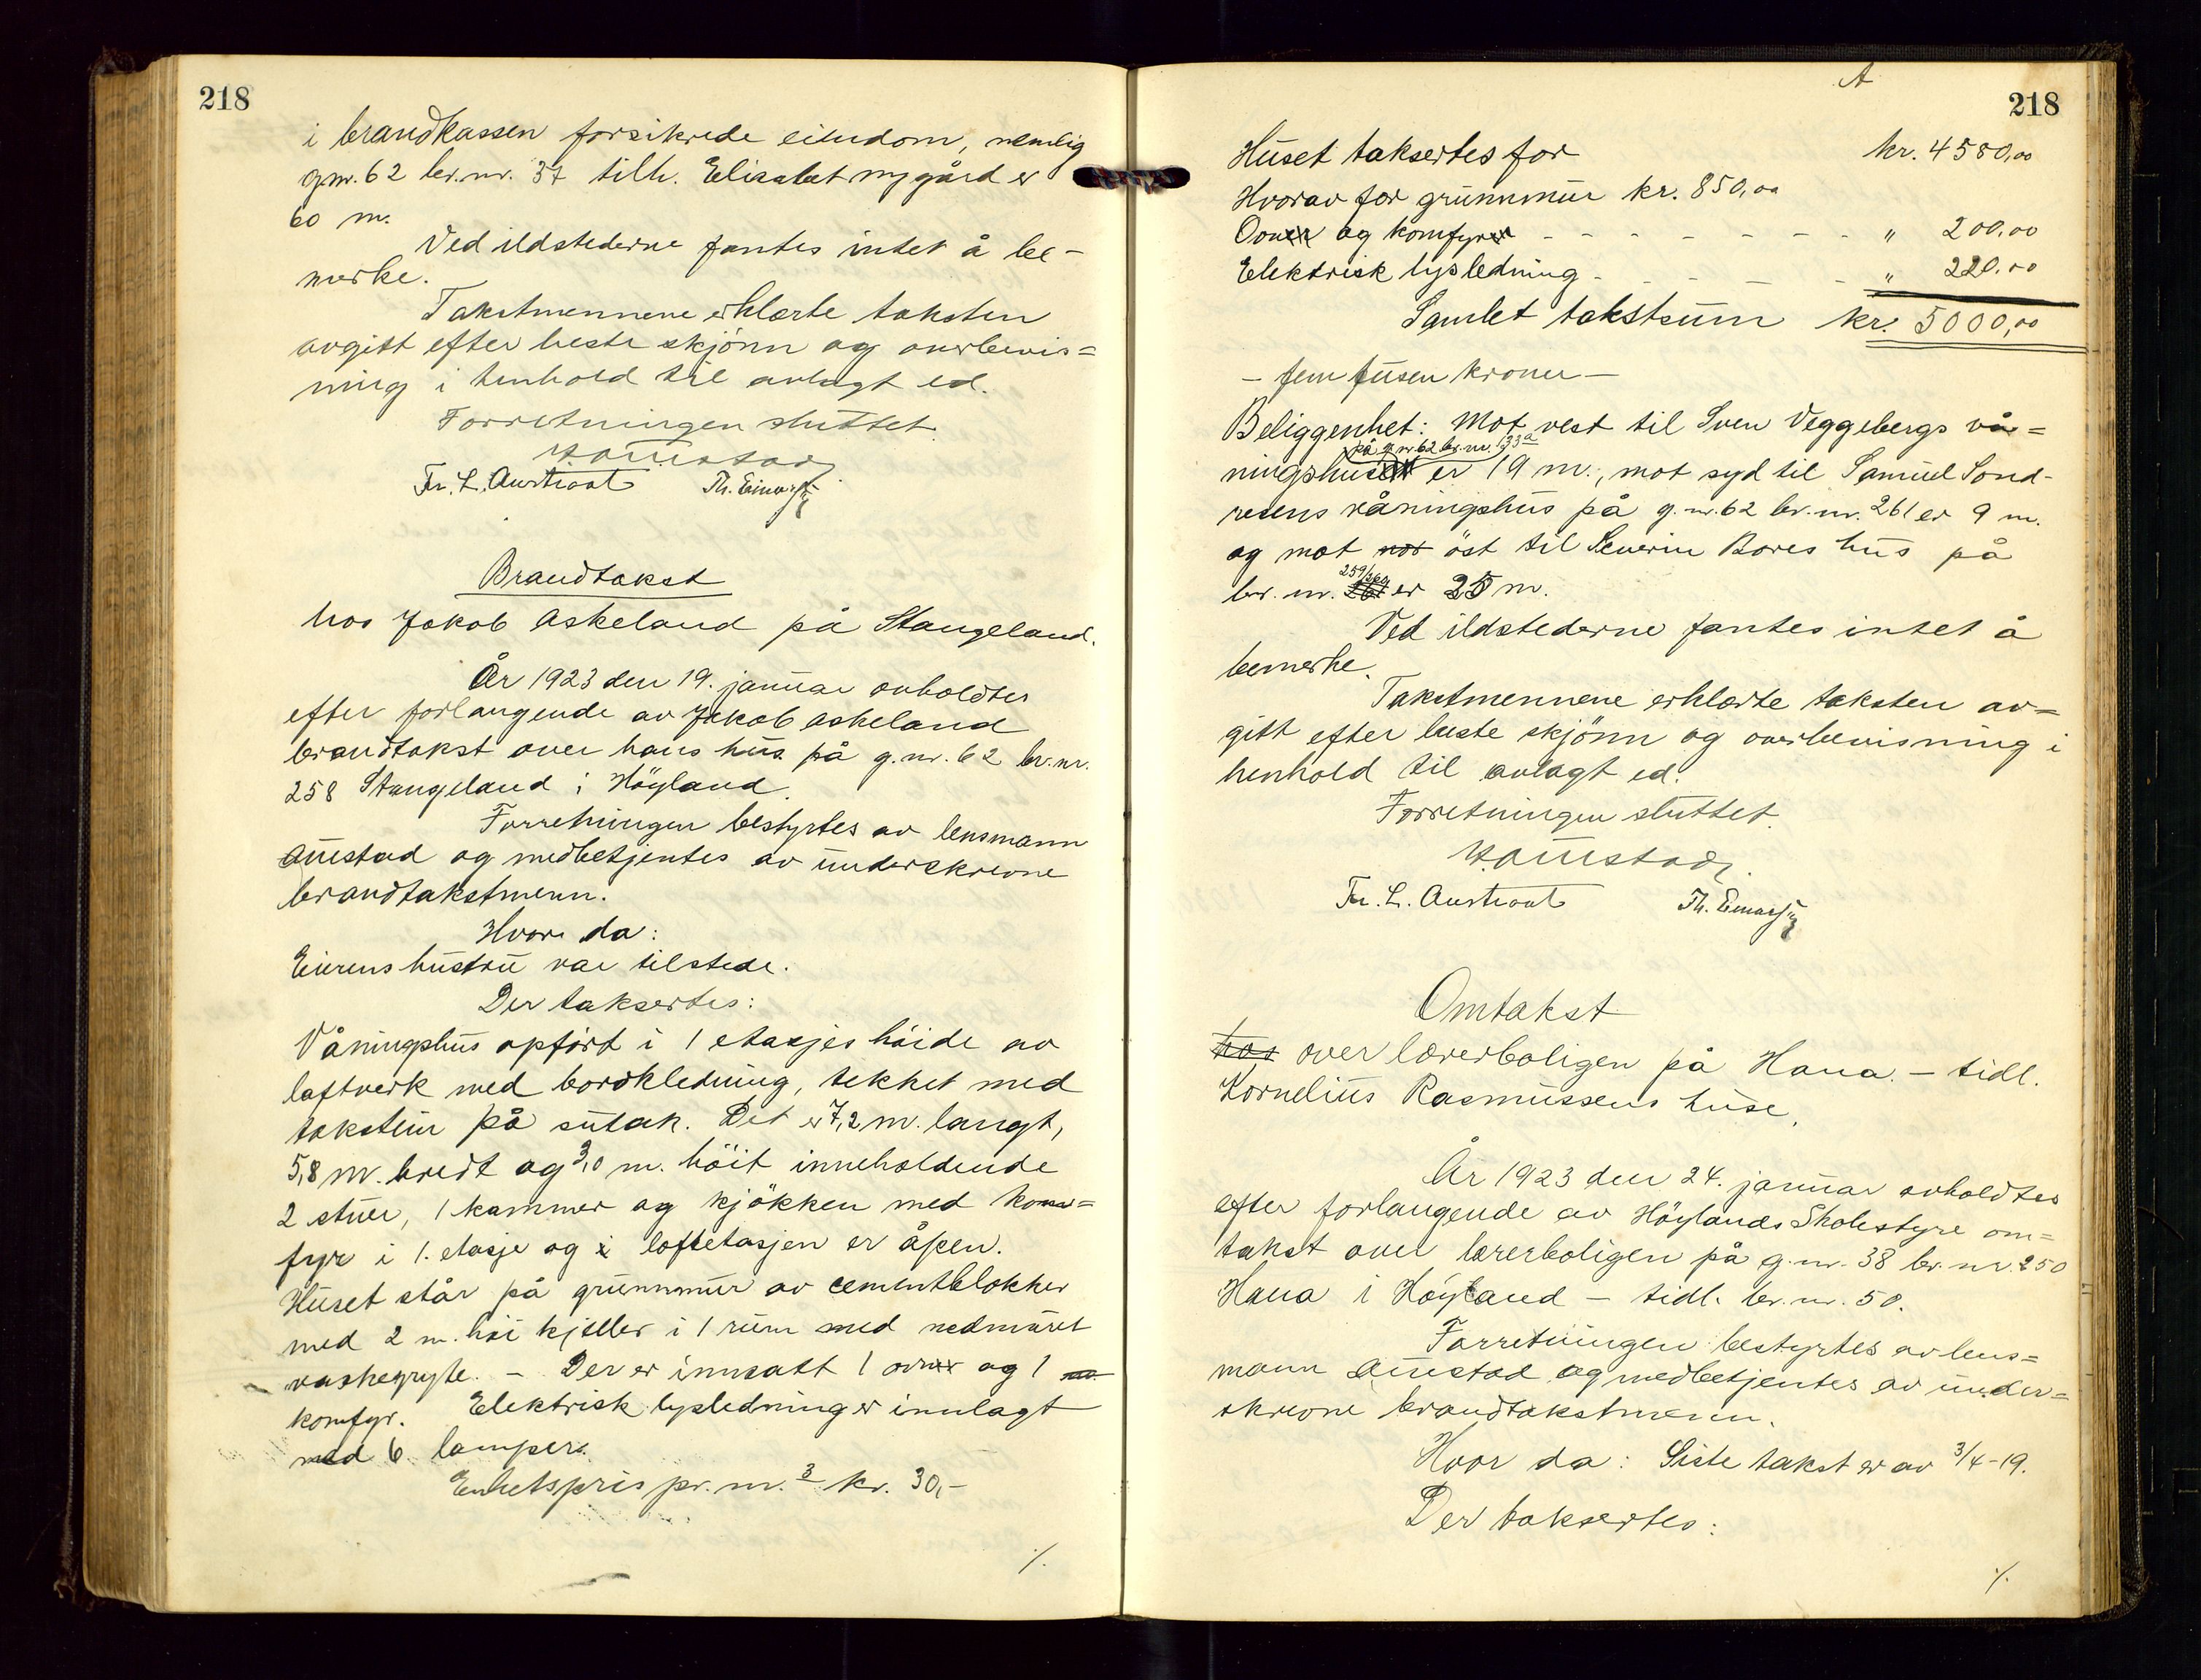 218
i brandkassen forsikrede eiendom, nemlig
g.nr. 62 br.nr. 37 tilh. Elisabet nygård er
60 m.
Ved ildstederne fantes intet å be-
merke.
Takstmennene erklærte taksten
avgitt efter beste skjönn og overbevis=
ning i henhold til avlagt ed.
Forretningen sluttet.
Haustad
Fr. L. Austraat Th. Einarsen
Brandtakst
hos Jakob Askeland på Stangeland.
År 1923 den 19. januar avholdtes
efter forlangende av Jakob Askeland
brandtakst over hans hus på g.nr. 62 br.nr.
258 Stangeland i Höyland.
Forretningen bestyrtes av lensmann
Austad og medbetjentes av underskrevne
brandtakstmenn.
Hvor da:
Eierens hustru var tilstede.
Der taksertes:
Våningshus opfört i 1 etasjes höide av
laftverk med bordkledning, tekket med
takstein på sutak. Det er 7,2 m. langt,
5,8 m. bredt og 3,0 m. höit inneholdende
2 stuer, 1 kammer og kjökken med kom=
fyr i 1. etasje og i loftetasjen er åpen.
Huset står på grunnmur av cementblokker
med 2 m. höi kjeller i 1 rum med nedmuret
vaskegryte. - Der er innsatt 1 ovner og 1
komfyr. Elektrisk lysledning er innlagt
med 6 lamper.
Enhetspris pr. m.3 kr. 30,-
./.
A
218
Huset taksertes for kr. 4580,00
Hvorav for grunnmur kr. 850,00
Ovner og komfyrer - - - - - - - - " 200,00
Elektrisk lysledning - - - - - " 220,00
Samlet takstsum kr. 5000,00
- fem tusen kroner -
Beliggenhet: Mot vest til Sven Veggebergs vå=
på g.nr. 62 br.nr. 133a
ningshuset er 19 m., mot syd til Samuel Sond-
resens våningshus på g.nr. 62 br.nr. 261 er 9 m.
og mot nor öst til Severin Bores hus på
259/260
br. nr. 261 er 25 m.
Ved ildstederne fantes intet å
bemerke.
Takstmennene erklærte taksten av=
gitt efter beste skjönn og overbevisning i
henhold til avlagt ed.
Forretningen sluttet.
Haustad
Fr. L. Austraat Th. Einarsen
Omtakst
hos over lærerboligen på Hana. - tidl.
Kornelius Rasmussens huse.
År 1923 den 24. januar avholdtes
efter forlangende av Höylands Skolestyre om=
takst over lærerboligen på g.nr. 38 br.nr. 250
Hana i Höyland - tidl. br.nr. 50.
Forretningen bestyrtes av lens=
mann Austad og medbetjentes av under=
skrevne brandtakstmenn.
Hvor da: Siste takst er av 3/4-19.
Der taksertes:
./.